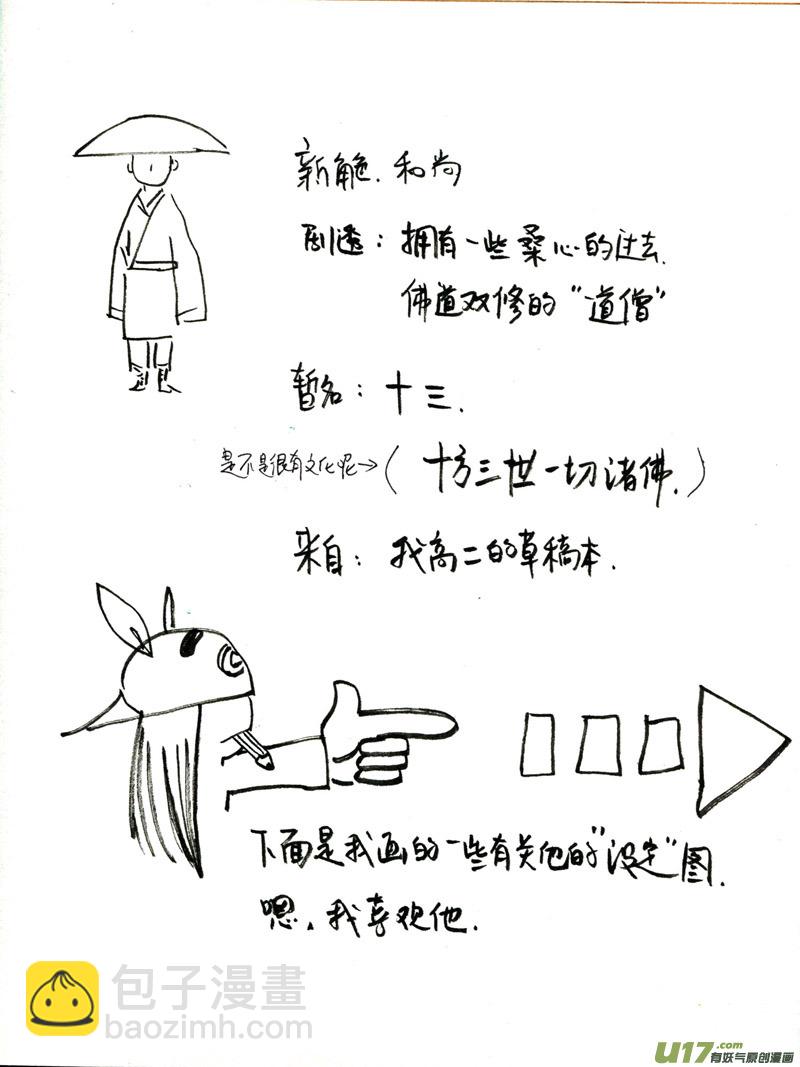 新角色.和尚
剧透：拥有一些桑心的过去.
佛道双修的“道僧”
暂名：十三.
是不是很有文化呢→(十方三世一切诸佛.)
来自：我高二的草稿本.
下面是我画的一些有关他的“设定”图.
嗯.我喜欢他.
包子漫畫
baozimh.com
U17.com
有妖气原创漫画